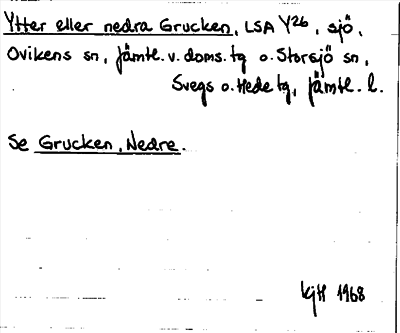 Ytter eller nedra Grucken, LSA Y26, sjö,
Ovikens sn, Jämtl. v. doms. tg o. Storsjö sn,
Svegs o. Hede tg, Jämtl. l.
Se Grucken, Nedre.
KjH 1968